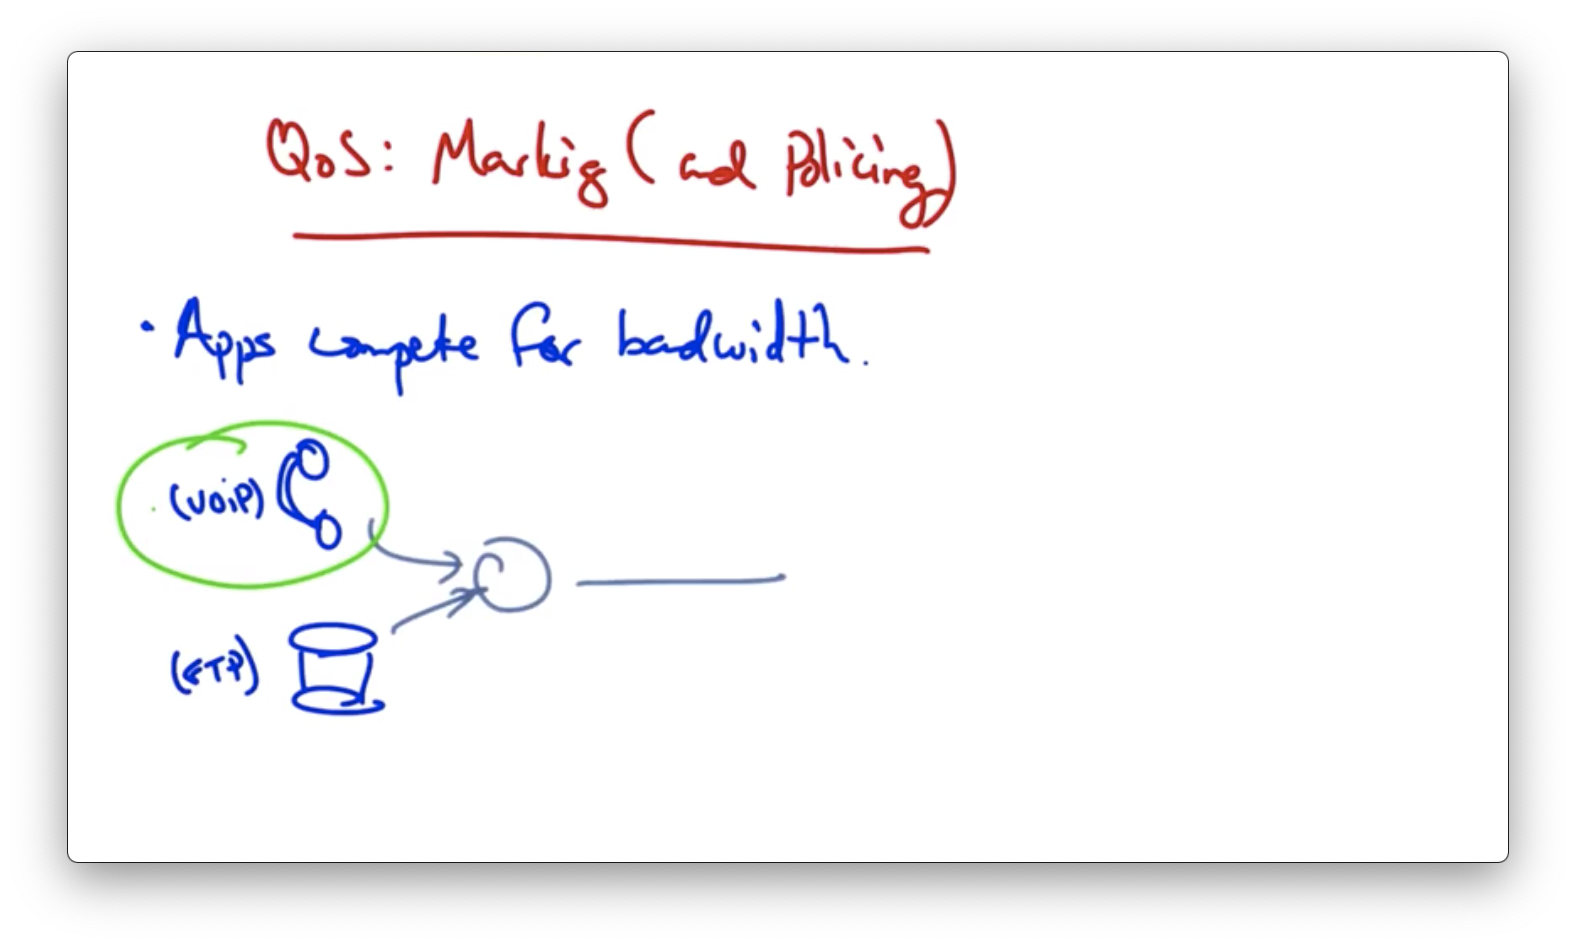 QoS: Markig (and Policing)
• Apps compete for badwidth.
(VOiP)
(FTP)